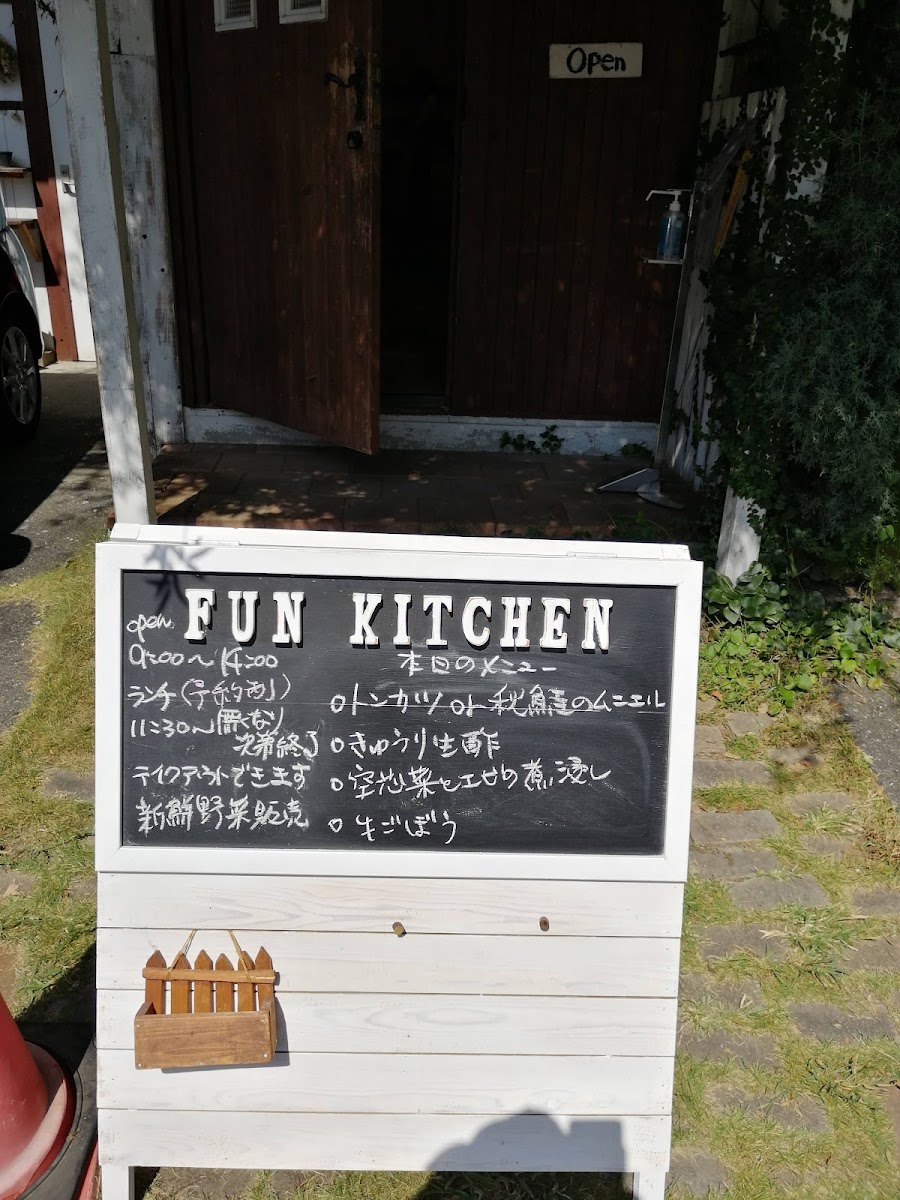 Open
FUN KITCHEN
open
9:00〜14:00
ランチ(予約制)
11:30〜無くなり
次第終了
テイクアウトできます
新鮮野菜販売
本日のメニュー
○トンカツ or 秋鮭のムニエル
○きゅうり生酢
○空芯菜とエビの煮浸し
○牛ごぼう